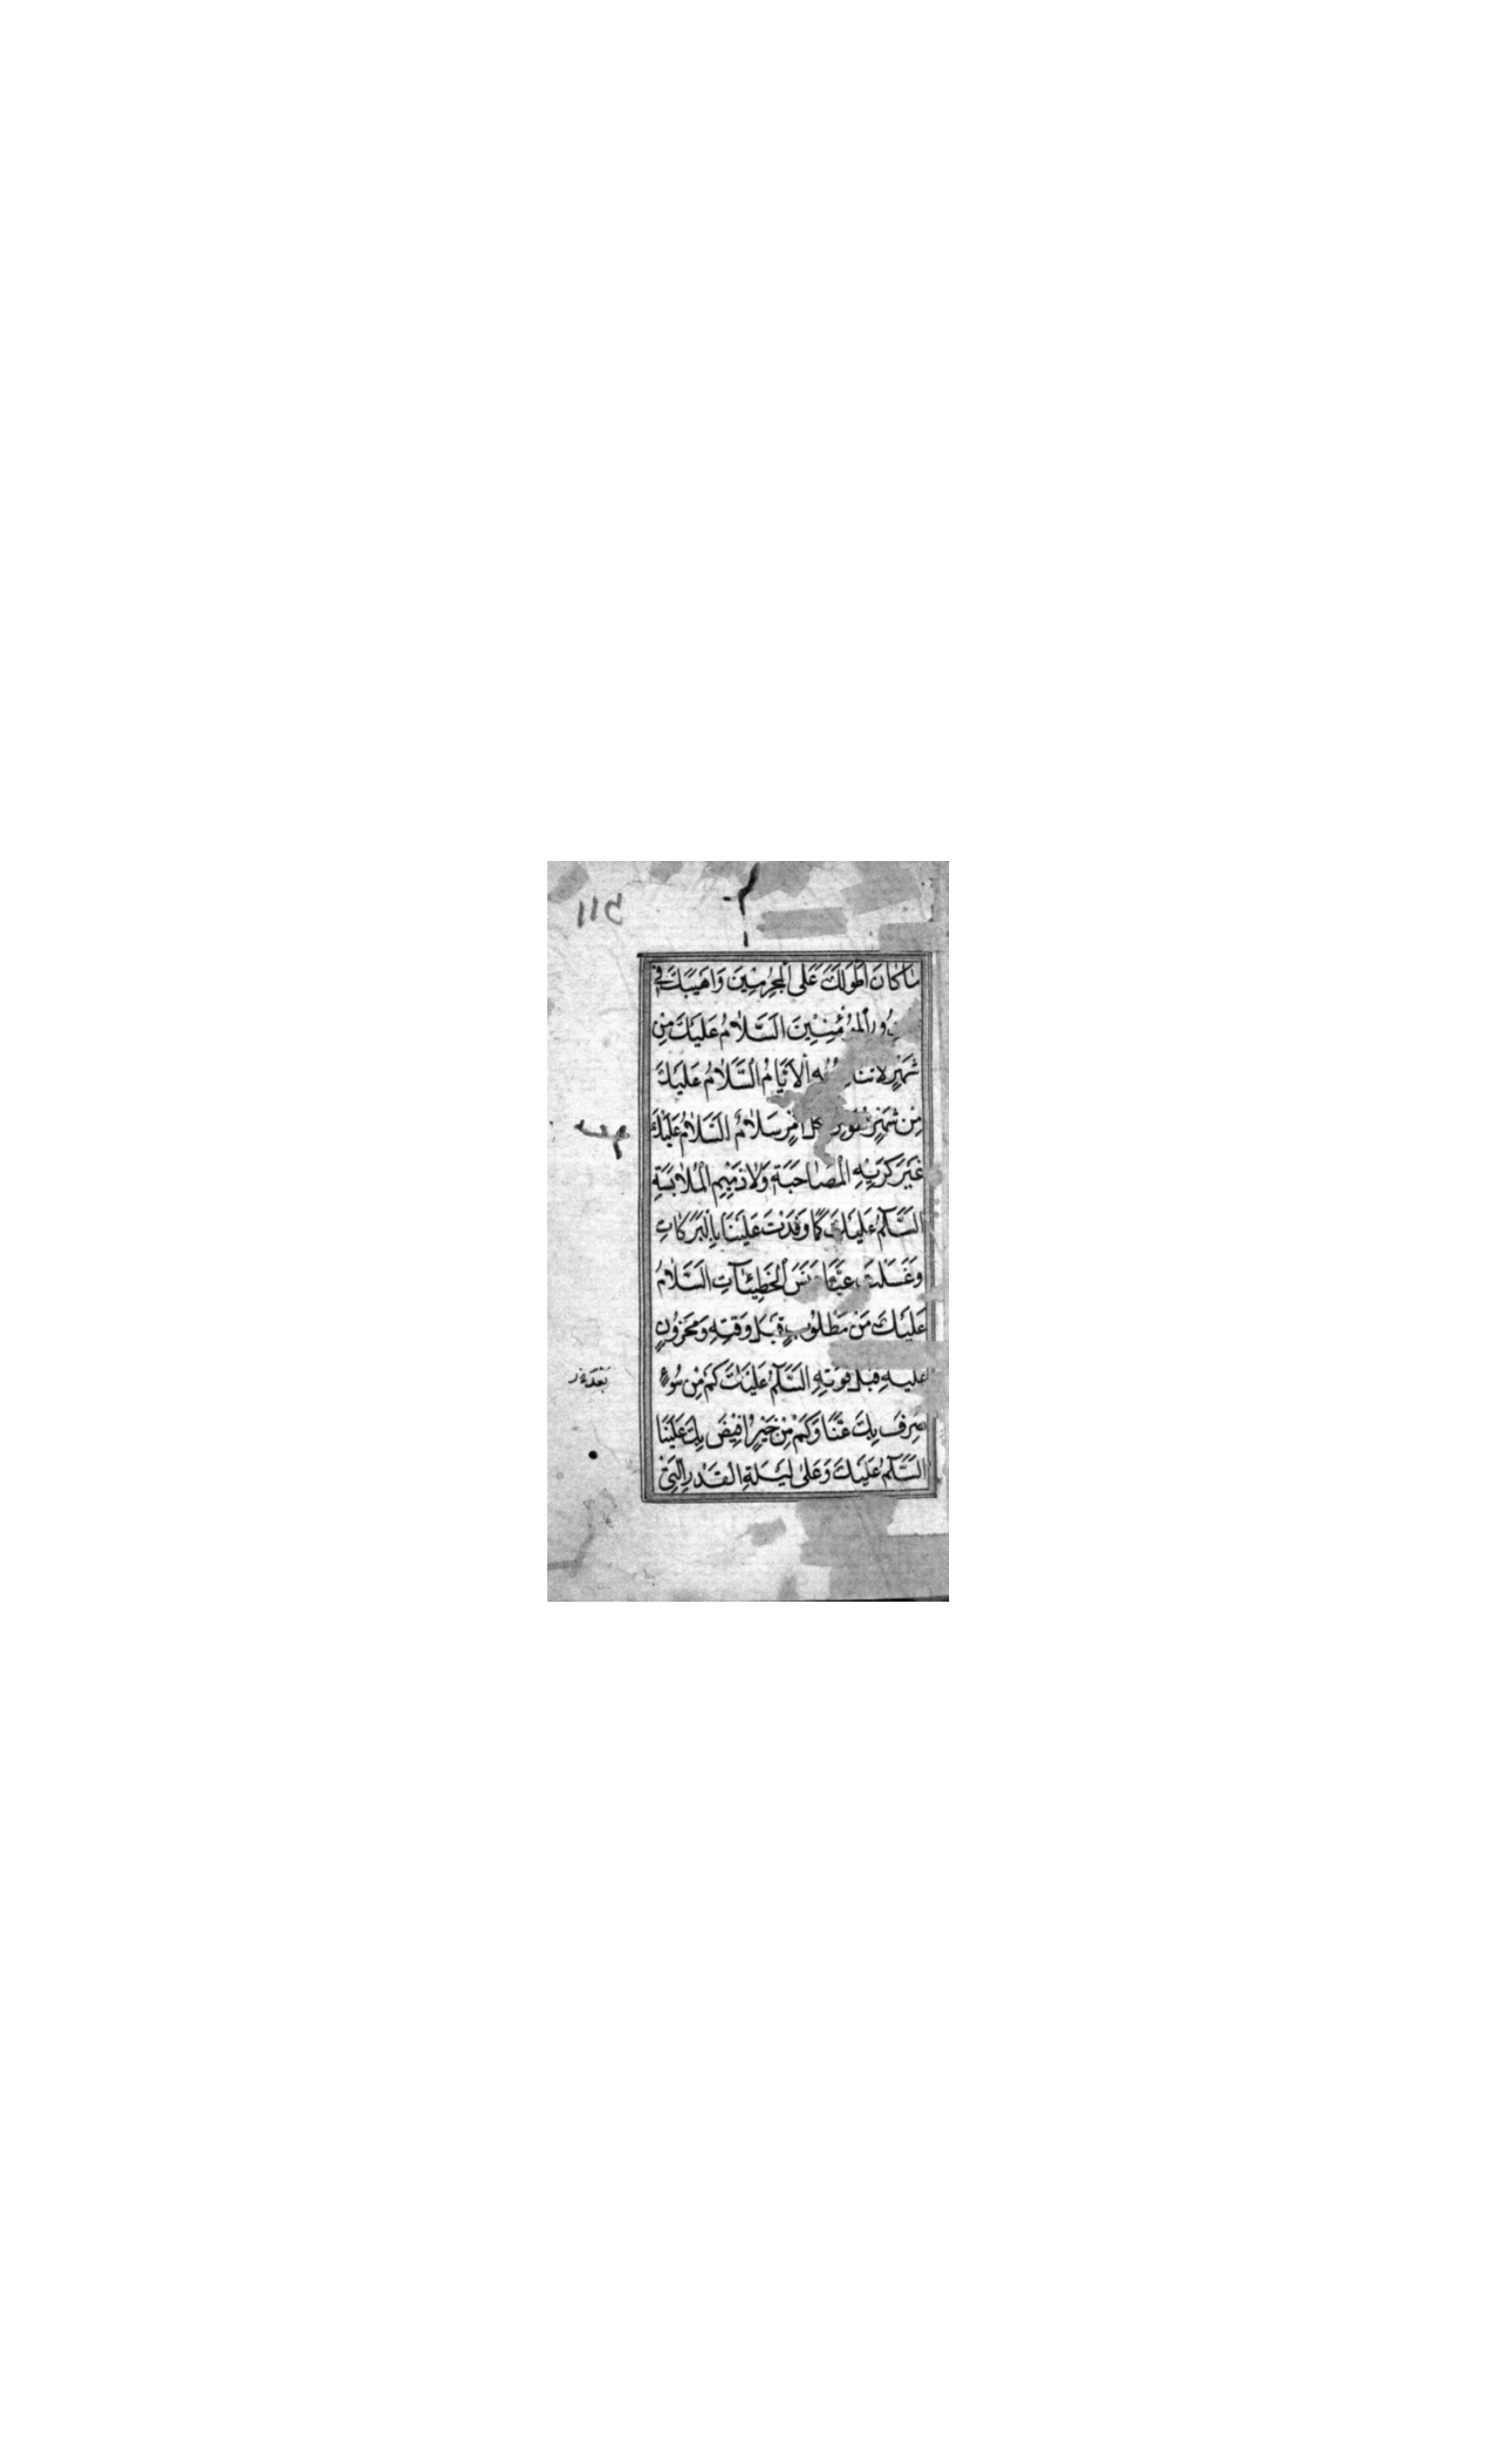 مَا كَانَ اَطْوَلَكَ عَلَى الْمُجْرِمِينَ وَاَهْيَبَكَ فِى
الْمُؤْمِنِينَ اَلسَّلَامُ عَلَيْكَ مِنْ
شَهْرٍ لَا الْاَيَّامُ اَلسَّلَامُ عَلَيْكَ
مِنْ شَهْرٍ هُوَ مِنْ كُلِّ اَمْرٍ سَلَامٌ اَلسَّلَامُ عَلَيْكَ
غَيْرَ كَرِيهِ الْمُصَاحَبَةِ وَلَا ذَمِيمِ الْمُلَابَسَةِ
اَلسَّلَامُ عَلَيْكَ كَمَا وَفَدْتَ عَلَيْنَا بِالْبَرَكَاتِ
وَغَسَلْتَ عَنَّا دَنَسَ الْخَطِيئَاتِ اَلسَّلَامُ
عَلَيْكَ مِنْ مَطْلُوبٍ قَبْلَ وَقْتِهِ وَمَحْزُونٍ
عَلَيْهِ قَبْلَ فَوْتِهِ اَلسَّلَامُ عَلَيْكَ كَمْ مِنْ سُوءٍ
صُرِفَ بِكَ عَنَّا وَكَمْ مِنْ خَيْرٍ اُفِيضَ بِكَ عَلَيْنَا
اَلسَّلَامُ عَلَيْكَ وَعَلَى لَيْلَةِ الْقَدْرِ الَّتِى